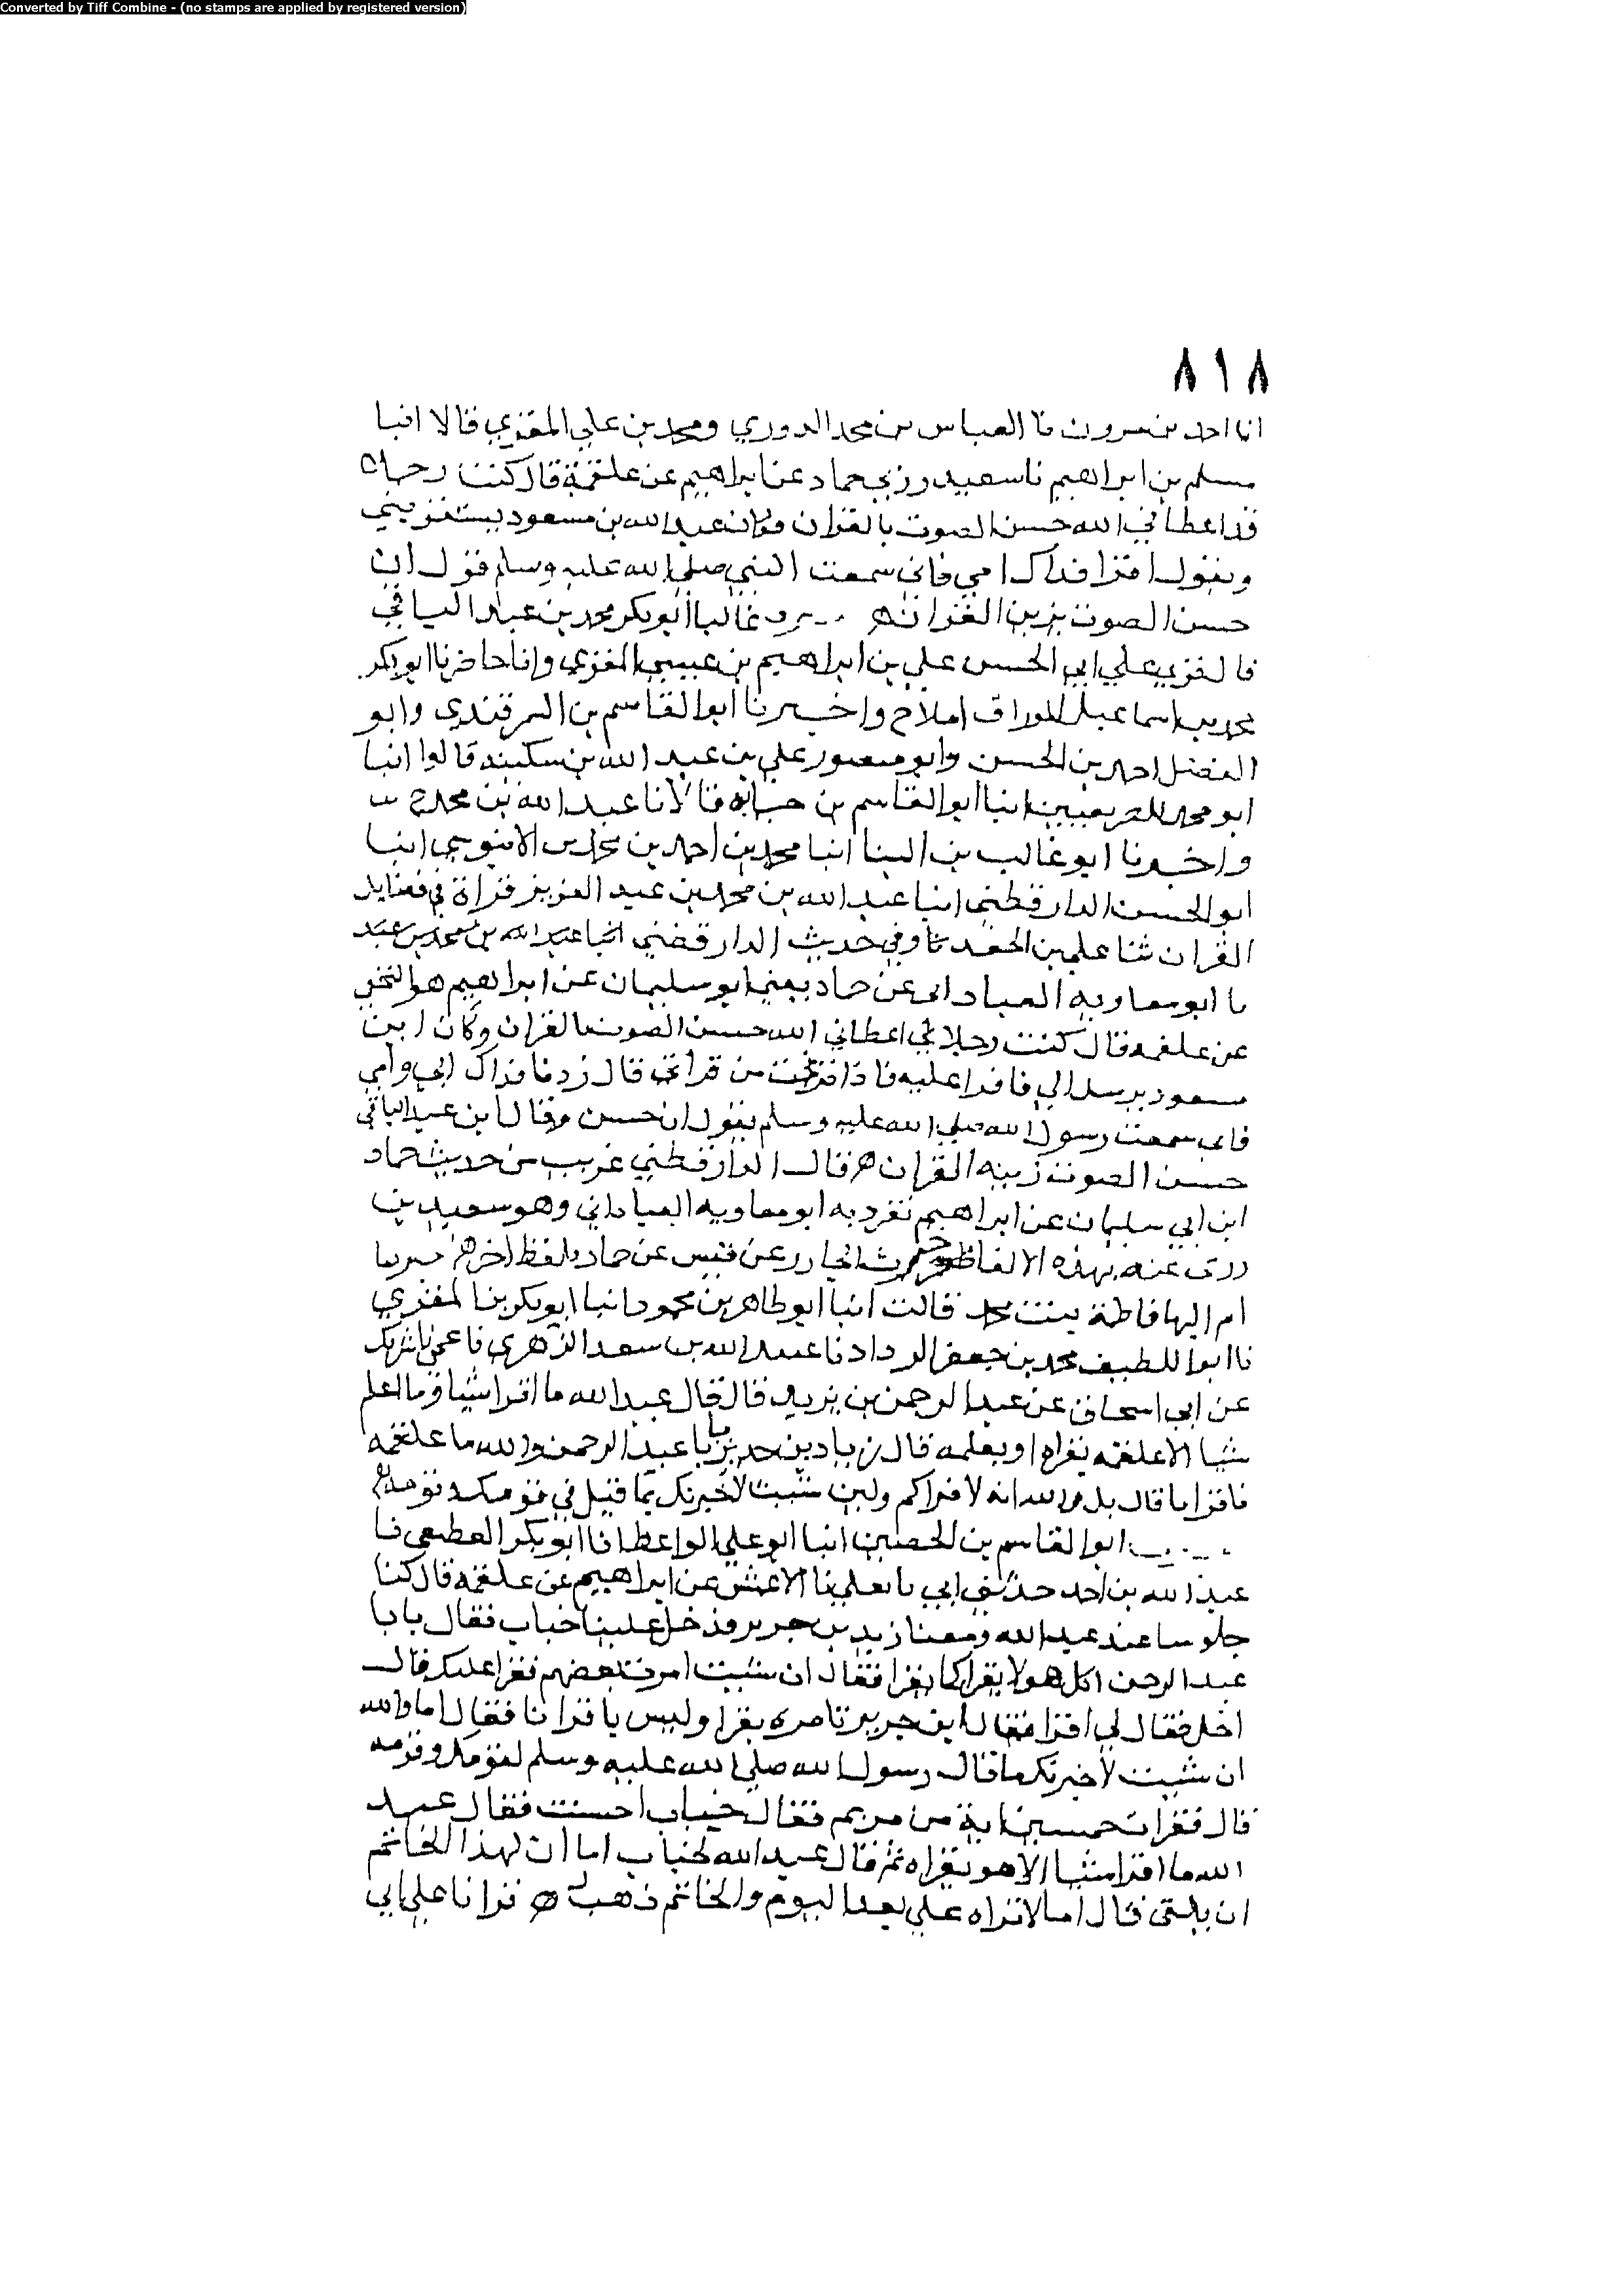 Converted by Tiff Combine - (no stamps are applied by registered version)
٨١٨
انا احمد بن مروان نا العباس بن محمد الدوري ومحمد بن علي المقري قالا انبا
مسلم بن ابراهيم نا سعيد بن زربي حماد عن ابراهيم عن علقمة قال كنت رجلا
قد اعطاني الله حسن الصوت بالقران وكان عبد الله بن مسعود يستقريني
ويقول اقرا فداك امي فاني سمعت النبي صلي الله عليه وسلم يقول ان
حسن الصوت يزين القران ابو بكر محمد بن عبد الباقي
قال قري علي ابي الحسن علي بن ابراهيم بن عيسي المقري وانا حاضر نا ابو بكر
محمد بن اسماعيل الوراق املا ح واخبرنا ابو القاسم بن السمرقندي وابو
الفضل احمد بن الحسن وابو منصور علي بن عبد الله بن سكينه قالوا انبا
ابو محمد الصريفيني انبا ابو القاسم بن حبابه قالا نا عبد الله بن محمد ح
واخبرنا ابو غالب بن البنا انبا محمد بن احمد بن محمد بن الابنوسي انبا
ابو الحسن الدارقطني انبا عبد الله بن محمد بن عبد العزيز قراة في فضايل
القران ثنا علي بن الجعد نا وفي حديث الدارقطني انبا عبد الله بن محمد بن عبد
نا ابو معاويه العباداني عن حماد يعني ابو سليمان عن ابراهيم هو النخعي
عن علقمه قال كنت رجلا اعطاني الله حسن الصوت بالقران وكان ابن
مسعود يرسل الي فاقرا عليه فاذا فرغت من قراتي قال زدنا فداك ابي وامي
فاني سمعت رسول الله صلي الله عليه وسلم يقول ان حسن وقال ابن عبد الباقي
حسن الصوت زينه القران ه قال الدارقطني غريب من حديث حماد
ابن ابي سليمان عن ابراهيم تفرد به ابو معاويه العباداني وهو سعيد بن
زربي عنه بهذه الالفاظ عن قيس عن حماد بلفظ اخر ه اخبرتنا
ام البها فاطمة بنت محمد قالت انبا ابو طاهر بن محمود انبا ابو بكر بن المقري
نا ابو الطيب محمد بن جعفر الزراد نا عبيد الله بن سعد الزهري نا عمي نا شريك
عن ابي اسحاق عن عبد الرحمن بن يزيد قال قال عبد الله ما اقرا شيا وما اعلم
شيا الا علقمه يقراه او يعلمه قال زياد بن حدير يا با عبد الرحمن والله ما علقمه
باقرانا قال بلى والله انه لاقراكم ولين شيت لاخبرنك بما قيل في قومك وقومه
ابو القاسم بن الحصين انبا ابو علي الواعظ انا ابو بكر القطيعي نا
عبد الله بن احمد حدثني ابي نا يعلي نا الاعمش عن ابراهيم عن علقمه قال كنا
جلوسا عند عبد الله ومعنا زيد بن حدير فدخل علينا خباب فقال يا با
عبد الرحمن اكل هولا يقرا كما تقرا فقال ان شيت امرت بعضهم فقرا عليك قال
اجل فقال لي اقرا فقال ابن حدير تامره يقرا وليس باقرانا فقال اما والله
ان شيت لاخبرنك ما قال رسول الله صلي الله عليه وسلم لقومك وقومه
قال فقرات خمسين اية من مريم فقال خباب احسنت فقال عبد
الله ما اقرا شيا الا هو يقراه ثم قال عبد الله لخباب اما ان لهذا الخاتم
ان يلقى قال اما لا تراه علي بعد اليوم والخاتم ذهب ه قرانا علي ابي